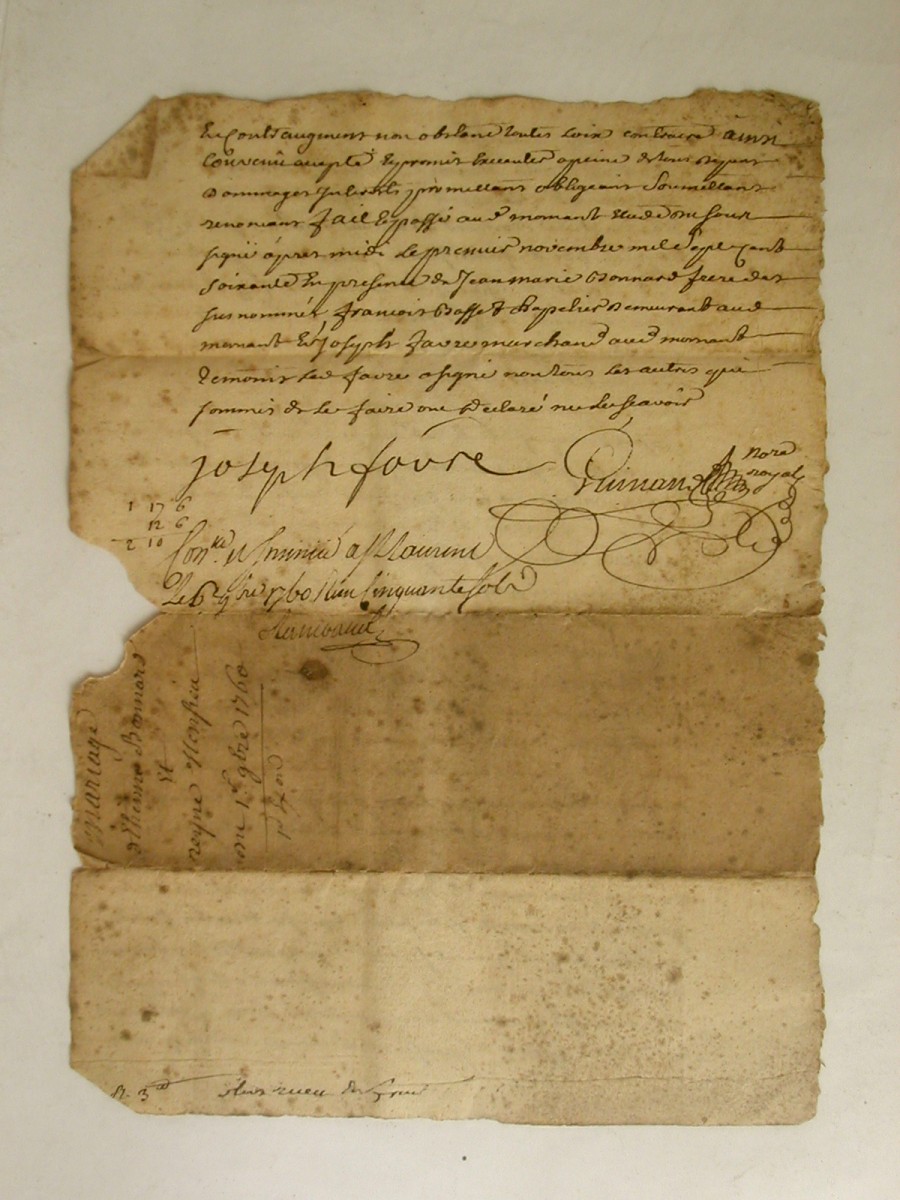 et coutt augment non obstant toutes Loix contraire ainsi
Convenû accepté Et promis Executer a peine de tous depens
Dommages Interests promettans obligeans Soumettans
renoncans fait Et passé aud mornant Etude Sous
signé apres midi Le premier novembre mil sept Cent
Soixante En presence de Jean marie Bonnard frere des
sus nommés francois Basset chapelier demeurant aud
mornant Et Joseph favre marchand aud mornant
temoins Led favre a signé non tous Les autres que
sommés de Le faire ont declaré ne le scavoir
joseph favre
nore
royal
1 17 6
12 6
2 10
Conlé et insinué a St Laurent
Le 6e 9bre 1760 Reçu Cinquante sols
mariage
d'Etienne Bonnard
Et
reyne
du 1er 9bre 1760